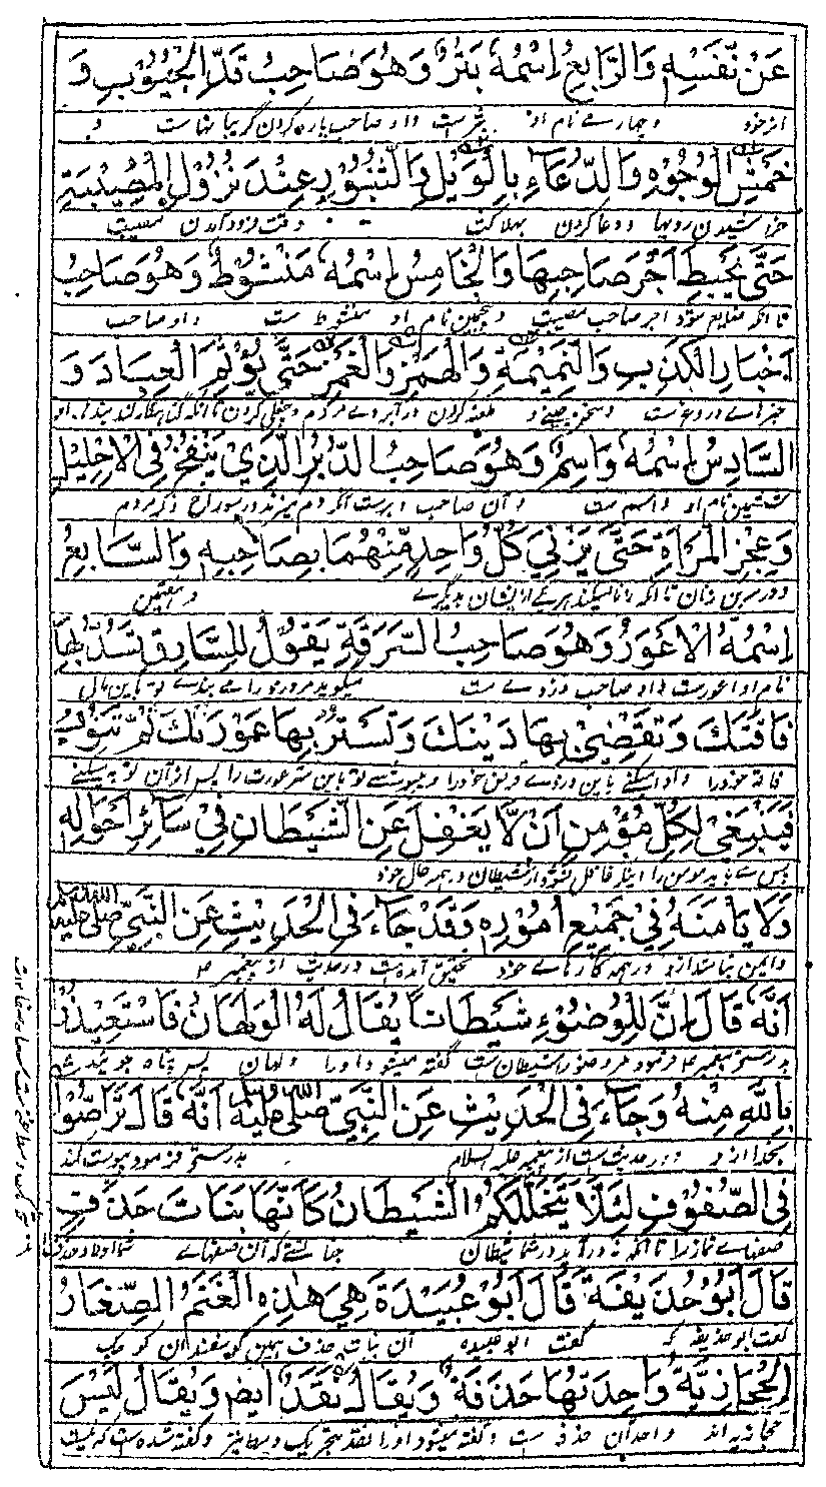 عَنْ نَفْسِهِ وَالرَّابِعُ اِسْمُهُ بَتَرٌ وَهُوَ صَاحِبُ قَدِّ الْجُيُوْبِ وَ
از خود و چهارمے نام او بترست و او صاحب پاره کردن گریبانهاست و
خَمْشِ الْوُجُوْهِ وَالدُّعَآءِ بِالْوَيْلِ وَالثُّبُوْرِ عِنْدَ نُزُوْلِ الْمُصِيْبَةِ
خراشیدن رویها و دعا کردن بهلاکت وقت فرود آمدن مصیبت
حَتّٰى يُحْبِطَ اَجْرَ صَاحِبِهَا وَالْخَامِسُ اِسْمُهُ مَنْشُوْطٌ وَهُوَ صَاحِبُ
تا آنکه ضایع شود اجر صاحب مصیبت و پنجمین نام او منشوط ست و او صاحب
اَخْبَارِ الْكَذِبِ وَالنَّمِيْمَةِ وَالْهَمْزِ وَالْغَمْزِ حَتّٰى يُؤْثِمَ الْعِبَادَ وَ
خبرهاے دروغ ست و طعنه کردن در آبروے مردم و چغلی کردن تا آنکه گناهگار کند بندها و
السَّادِسُ اِسْمُهُ وَاسِمٌ وَهُوَ صَاحِبُ الدُّبُرِ الَّذِيْ يَنْفُخُ فِي الْاِحْلِيْلِ
ششمین نام او واسم ست و آن صاحب دبرست آنکه دم میزند در سوراخ ذکر مردم
وَعَجُزِ الْمَرْاَةِ حَتّٰى يَزْنِيَ كُلُّ وَاحِدٍ مِّنْهُمَا بِصَاحِبِهٖ وَالسَّابِعُ
و در سرین زنان تا آنکه زنا میکند هر یکے از ایشان بدیگرے و هفتمین
اِسْمُهُ الْاَعْوَرُ وَهُوَ صَاحِبُ السَّرَقَةِ يَقُوْلُ لِلسَّارِقِ تَسُدُّ بِهَا
نام او اعورست و او صاحب دزدے ست میگوید مر دزد را مے بندے تو باین مال
فَاقَتَكَ وَتَقْضِيْ بِهَا دَيْنَكَ وَتَسْتُرُ بِهَا عَوْرَتَكَ ثُمَّ تَتُوْبُ
فاقه خود را و ادا میکنے باین دزدے قرض خود را و میپوشے تو باین ستر عورت را پس از آن توبه میکنے
فَيَنْبَغِيْ لِكُلِّ مُؤْمِنٍ اَنْ لَّا يَغْفُلَ عَنِ الشَّيْطَانِ فِيْ سَآئِرِ اَحْوَالِهٖ
پس مے باید مومن را اینکه غافل نشود از شیطان در همه حال خود
وَلَا يَاْمَنَهُ فِيْ جَمِيْعِ اُمُوْرِهٖ وَقَدْ جَآءَ فِي الْحَدِيْثِ عَنِ النَّبِيِّ صلى الله عليه وسلم
و ایمن نباشد ازو در همه کارهاے خود تحقیق آمده ست در حدیث از پیغمبر ص
اَنَّهُ قَالَ اِنَّ لِلْوُضُوْءِ شَيْطَانًا يُقَالُ لَهُ الْوَلَهَانُ فَاسْتَعِيْذُوْا
بدرستی پیغمبر ص فرمود مر وضو را شیطان ست گفته میشود او را ولهان پس پناه جوئید
بِاللّٰهِ مِنْهُ وَجَآءَ فِي الْحَدِيْثِ عَنِ النَّبِيِّ صلى الله عليه وسلم اَنَّهُ قَالَ تَرَاصُّوْا
بخدا ازو و در حدیث ست از پیغمبر علیه السلام بدرستی فرمود پیوست کنید
فِي الصُّفُوْفِ لِئَلَّا يَتَخَلَّلَكُمُ الشَّيْطَانُ كَاَنَّهَا بَنَاتُ حَذَفٍ
صفهاے نماز را تا آنکه نه درآید در شما شیطان
قَالَ اَبُوْ حُذَيْفَةَ قَالَ اَبُوْ عُبَيْدَةَ هِيَ هٰذِهِ الْغَنَمُ الصِّغَارُ
گفت ابو حذیفه که گفت ابو عبیده آن بنات حذف همین گوسفندان کوچک
الْحِجَازِيَّةُ وَاحِدَتُهَا حَذَفَةٌ وَيُقَالُ نَقَدٌ اَيْضًا وَيُقَالُ لَيْسَ
حجازیه اند واحد آن حذفه ست و گفته میشود او را نقد بتحریک و گفته شده ست که نیست